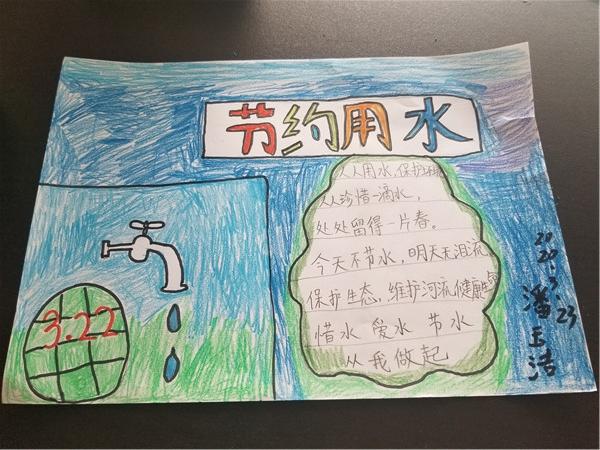 节约用水
人人用水,保护
人人珍惜一滴水,
处处留得一片春。
今天不节水,明天无泪流
保护生态,维护河流健康
惜水 爱水 节水
从我做起
3.22
2020.3.23
潘玉洁